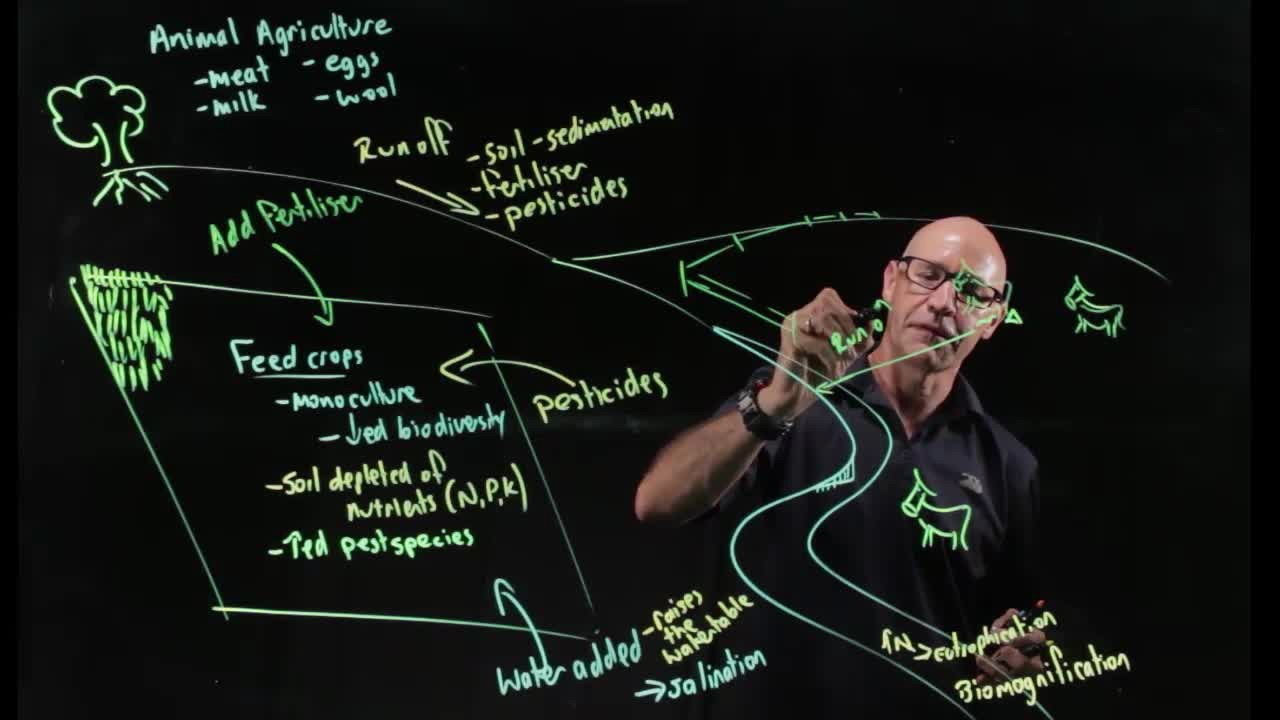 Animal Agriculture
- meat - eggs
- milk - wool
Run off - soil - sedimentation
- fertiliser
- pesticides
Add fertiliser
Feed crops
- monoculture
- ↓ed biodiversity
- Soil depleted of
nutrients (N,P,K)
- ↑ed pest species
pesticides
Water added - raises
the
watertable
→ salination
Run o
↑N > Eutrophication
Biomagnification